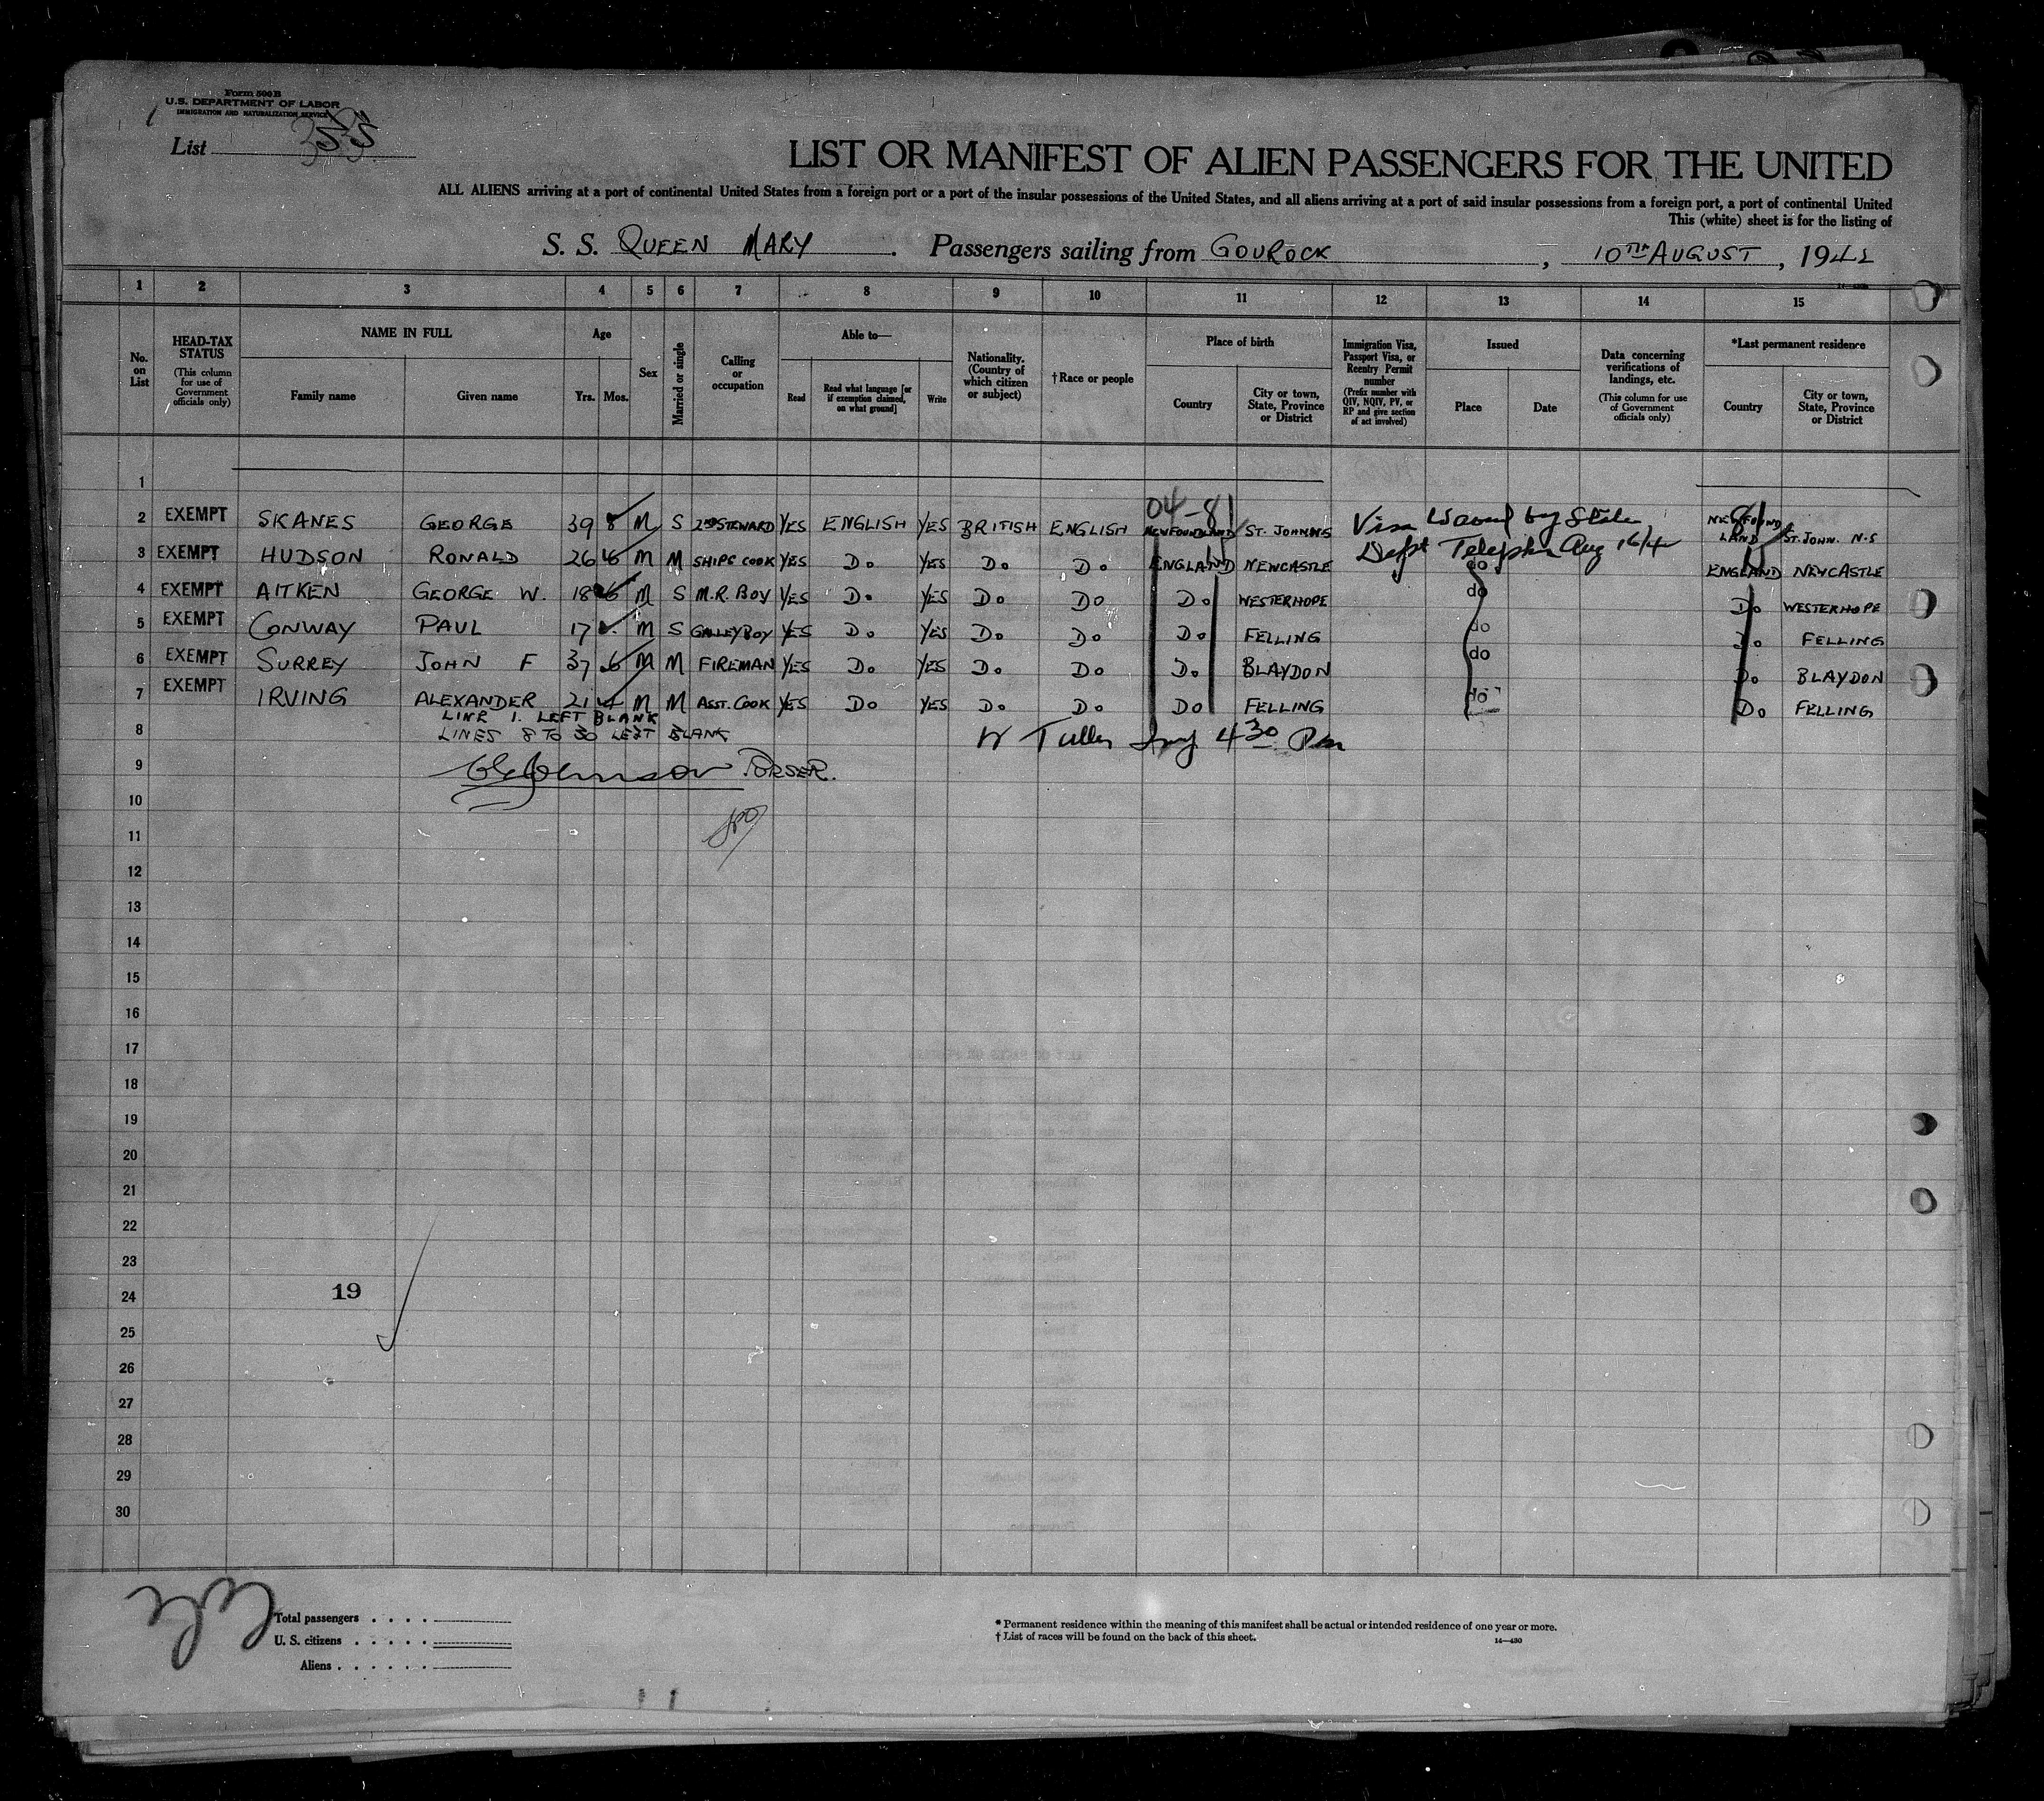 Form 500 B
U.S. DEPARTMENT OF LABOR
IMMIGRATION AND NATURALIZATION SERVICE
List
LIST OR MANIFEST OF ALIEN PASSENGERS FOR THE UNITED
ALL ALIENS arriving at a port of continental United States from a foreign port or a port of the insular possessions of the United States, and all aliens arriving at a port of said insular possessions from a foreign port, a port of continental United
This (white) sheet is for the listing of
S. S. QUEEN MARY. Passengers sailing from GOUROCK, 10TH AUGUST, 1942
1 2 3 4 5 6 7 8 9 10 11 12 13 14 15
No. on List
HEAD-TAX STATUS (This column for use of Government officials only)
NAME IN FULL
Family name Given name
Age
Yrs. Mos.
Sex
Married or single
Calling or occupation
Able to—
Read
Read what language [or if exemption claimed, on what ground]
Write
Nationality. (Country of which citizen or subject)
†Race or people
Place of birth
Country
City or town, State, Province or District
Immigration Visa, Passport Visa, or Reentry Permit number (Prefix number with QIV, NQIV, PV, or RP and give section of act involved)
Issued
Place Date
Data concerning verifications of landings, etc. (This column for use of Government officials only)
*Last permanent residence
Country
City or town, State, Province or District
1
04-81 81
2 EXEMPT SKANES GEORGE 39 8 M S 2ND STEWARD YES ENGLISH YES BRITISH ENGLISH NEWFOUNDLAND ST. JOHNS Visa Waved by State NEWFOUND LAND ST. JOHN. N.S
3 EXEMPT HUDSON RONALD 26 6 M M SHIPS COOK YES DO YES DO DO ENGLAND NEWCASTLE Dept Aug 16/4 do ENGLAND NEWCASTLE
4 EXEMPT AITKEN GEORGE W. 18 6 M S M.R. BOY YES DO YES DO DO DO WESTERHOPE do DO WESTERHOPE
5 EXEMPT CONWAY PAUL 17 M S GALLEY BOY YES DO YES DO DO DO FELLING do DO FELLING
6 EXEMPT SURREY JOHN F 37 6 M M FIREMAN YES DO YES DO DO DO BLAYDON do DO BLAYDON
7 EXEMPT IRVING ALEXANDER 21 4 M M ASST. COOK YES DO YES DO DO DO FELLING do DO FELLING
LINE 1. LEFT BLANK
8 LINES 8 TO 30 LEFT BLANK 4 30 Pm
9 PURSER.
10
11
12
13
14
15
16
17
18
19
20
21
22
23
24
25
26
27
28
29
30
19
Total passengers
U. S. citizens
Aliens
* Permanent residence within the meaning of this manifest shall be actual or intended residence of one year or more.
† List of races will be found on the back of this sheet.
14—430